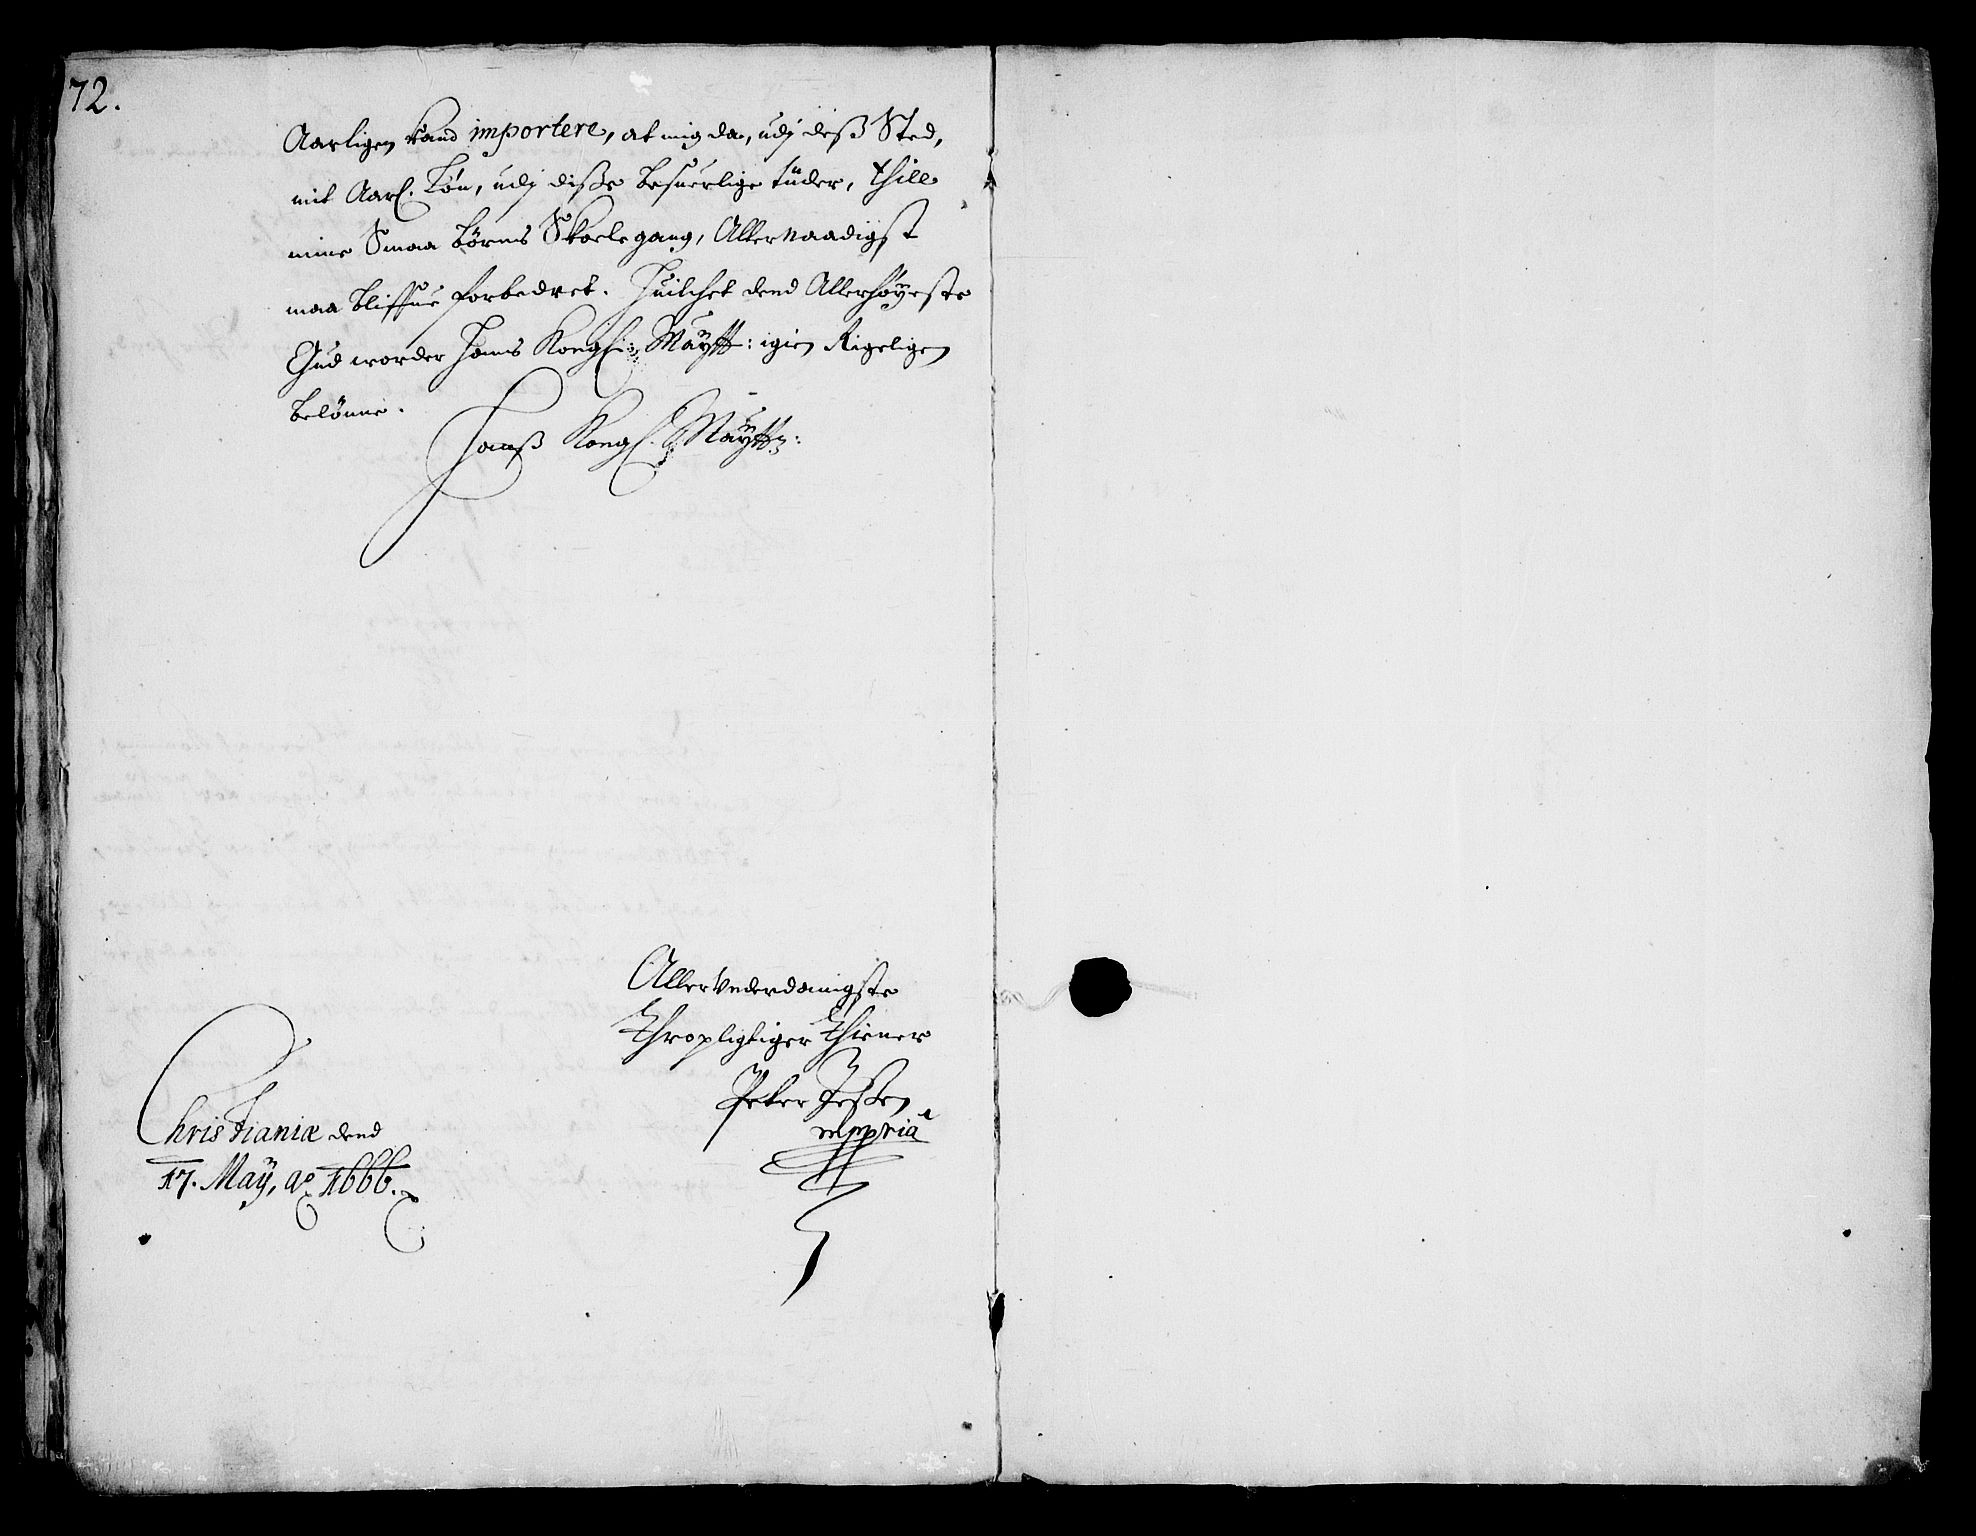 72.
Aarligen kand importere, at mig da, udj deß Sted,
mit Aarl. Løn, udj diße besuerlige tüder, thill
mine Smaa Børns Skoele gang, Allernaadigst
maa bliffue forbedret. Huilchet dend Allerhøyeste
Gud worder Hans Kongl: Mäytt: igien Rigeligen
belønne.
Hanß Kongl. Mäyttz:
Allervnderdanigste
Thropligtiger Thiener
Peter Jeßen
mppria
Christianiæ dend
17. Maÿ, ao 1666.